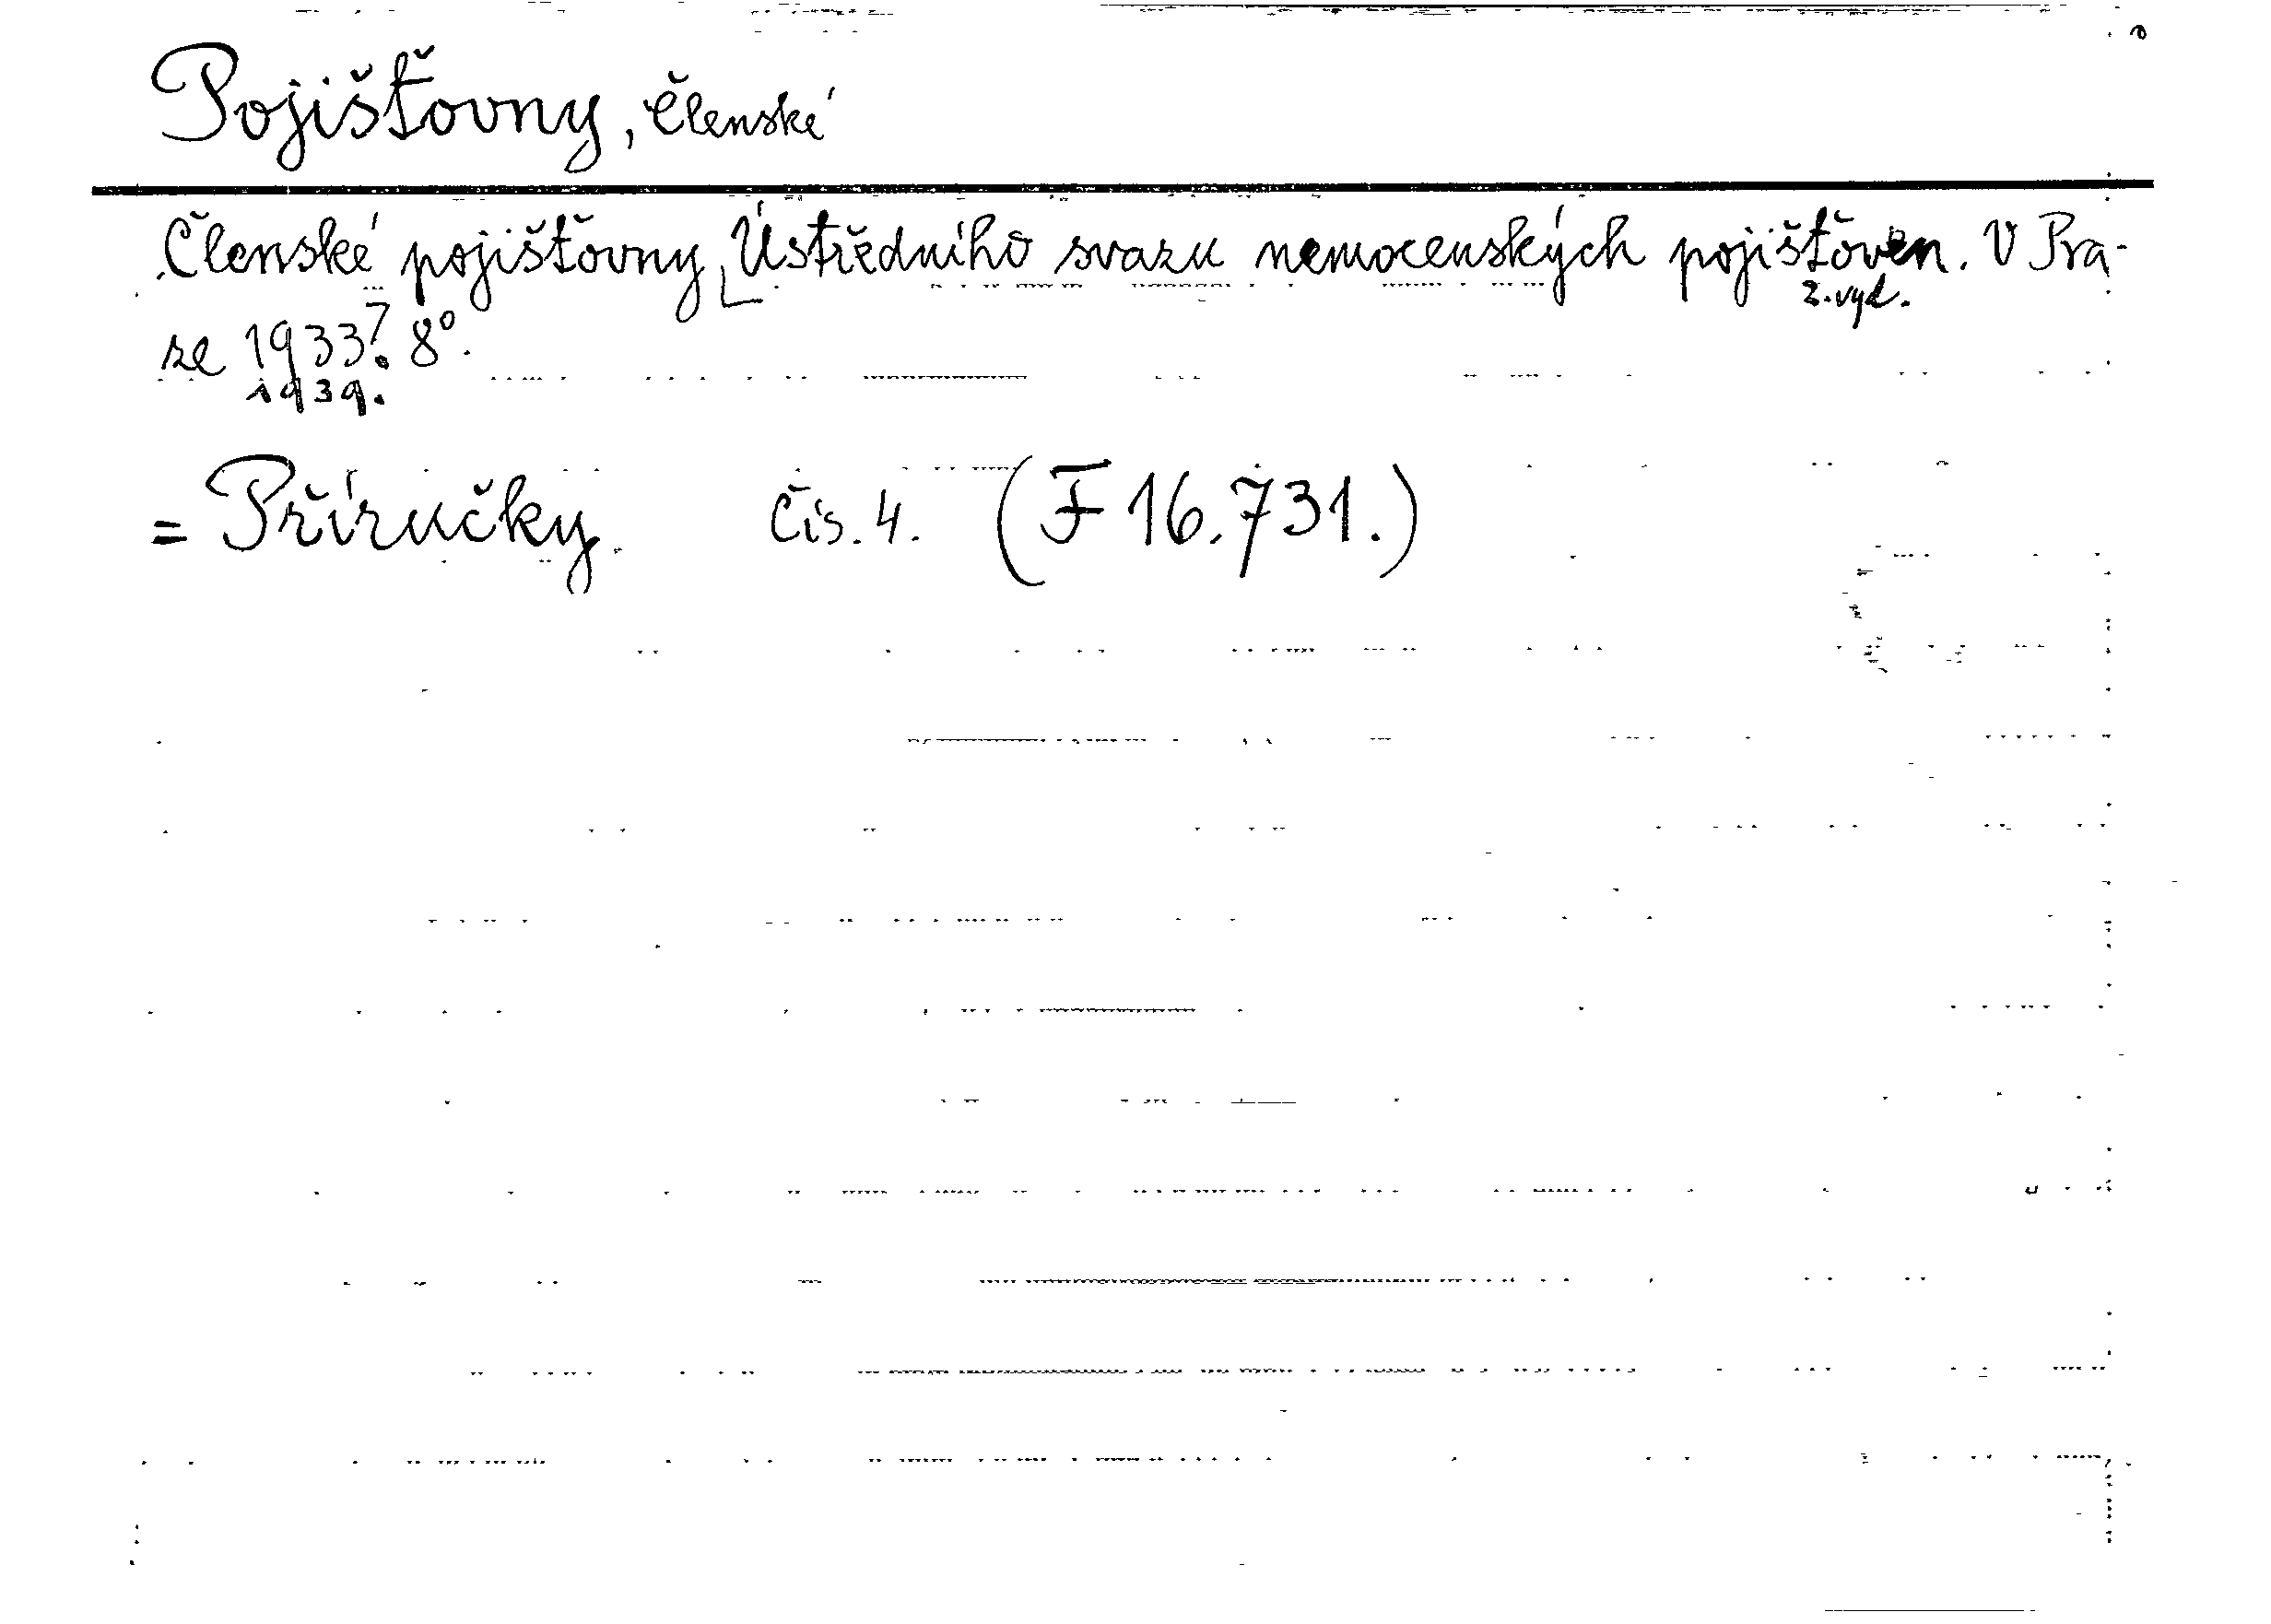 Pojišťovny, členské
Členské pojišťovny Ústředního svazu nemocenských pojišťoven. V Pra-
2. vyd.
ze 1933. 8°.
1939.
= Příručky čís. 4. (F 16.731.)